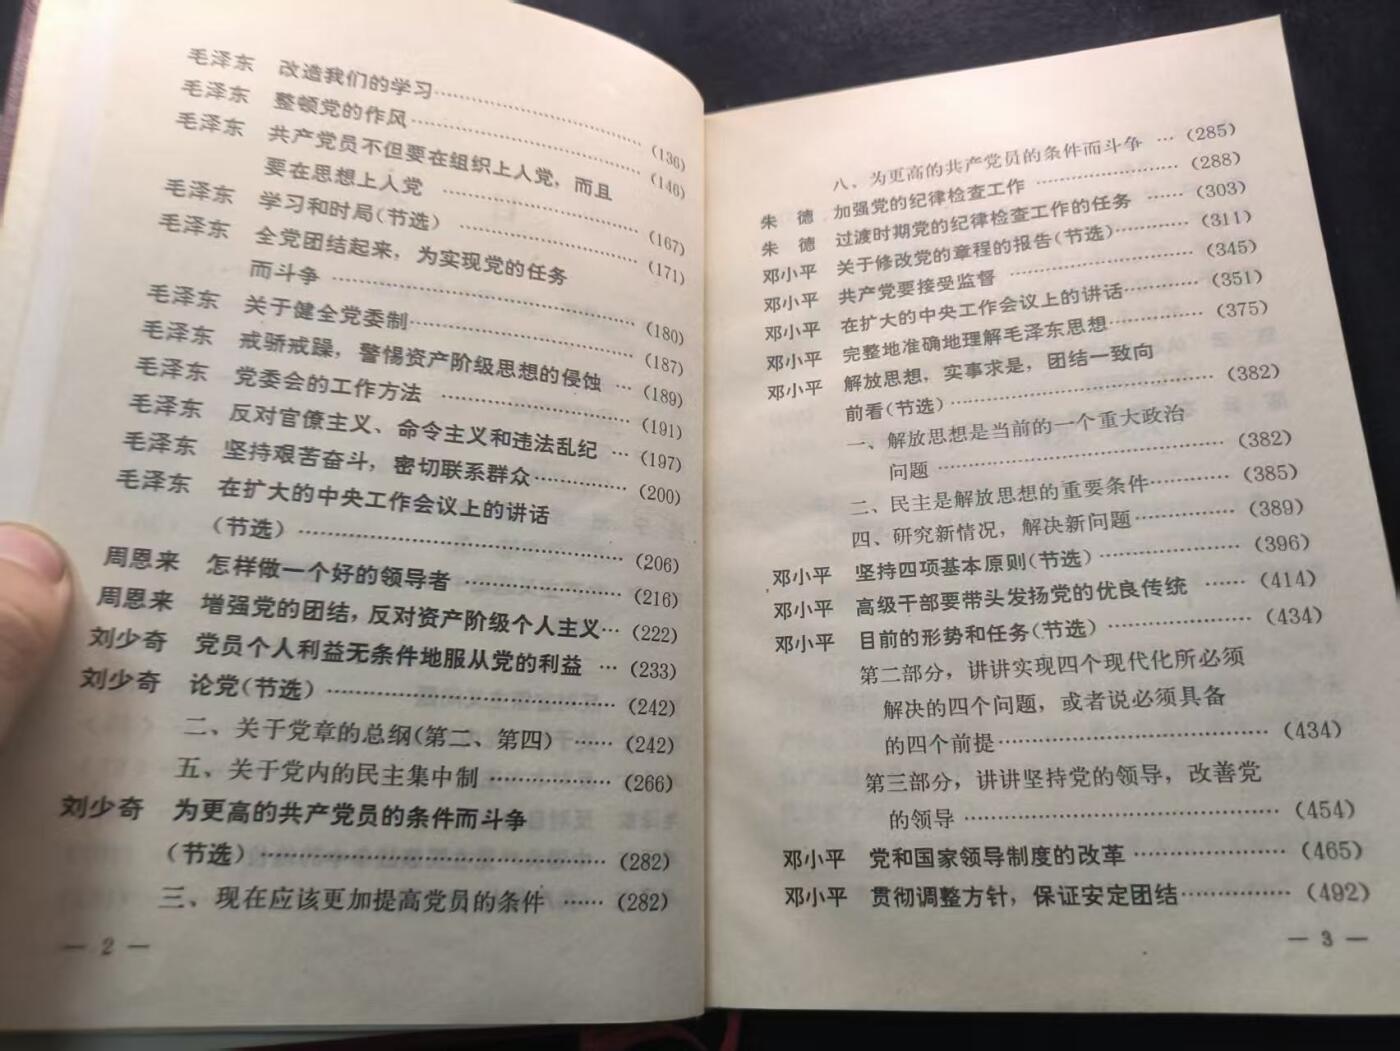 毛泽东 改造我们的学习……………………(136)
毛泽东 整顿党的作风……………………(146)
毛泽东 共产党员不但要在组织上入党，而且
要在思想上入党 ……………………(167)
毛泽东 学习和时局(节选) ……………………(171)
毛泽东 全党团结起来，为实现党的任务
而斗争 ……………………(180)
毛泽东 关于健全党委制……………………(187)
毛泽东 戒骄戒躁，警惕资产阶级思想的侵蚀 …(189)
毛泽东 党委会的工作方法 ……………………(191)
毛泽东 反对官僚主义、命令主义和违法乱纪 …(197)
毛泽东 坚持艰苦奋斗，密切联系群众…………(200)
毛泽东 在扩大的中央工作会议上的讲话
(节选)……………………(206)
周恩来 怎样做一个好的领导者 ……………(216)
周恩来 增强党的团结，反对资产阶级个人主义…(222)
刘少奇 党员个人利益无条件地服从党的利益 …(233)
刘少奇 论党(节选)……………………(242)
二、关于党章的总纲(第二、第四) ……(242)
五、关于党内的民主集中制 …………(266)
刘少奇 为更高的共产党员的条件而斗争
(节选)……………………(282)
三、现在应该更加提高党员的条件 ……(282)
— 2 —
八、为更高的共产党员的条件而斗争 …(285)
朱 德 加强党的纪律检查工作 ……………(288)
朱 德 过渡时期党的纪律检查工作的任务 ……(303)
邓小平 关于修改党的章程的报告(节选)………(311)
邓小平 共产党要接受监督 ……………………(345)
邓小平 在扩大的中央工作会议上的讲话………(351)
邓小平 完整地准确地理解毛泽东思想…………(375)
邓小平 解放思想，实事求是，团结一致向
前看(节选)……………………(382)
一、解放思想是当前的一个重大政治
问题 ……………………(382)
二、民主是解放思想的重要条件…………(385)
四、研究新情况，解决新问题……………(389)
邓小平 坚持四项基本原则(节选)……………(396)
邓小平 高级干部要带头发扬党的优良传统 ……(414)
邓小平 目前的形势和任务(节选)……………(434)
第二部分，讲讲实现四个现代化所必须
解决的四个问题，或者说必须具备
的四个前提……………………(434)
第三部分，讲讲坚持党的领导，改善党
的领导 ……………………(454)
邓小平 党和国家领导制度的改革 ……………(465)
邓小平 贯彻调整方针，保证安定团结…………(492)
— 3 —